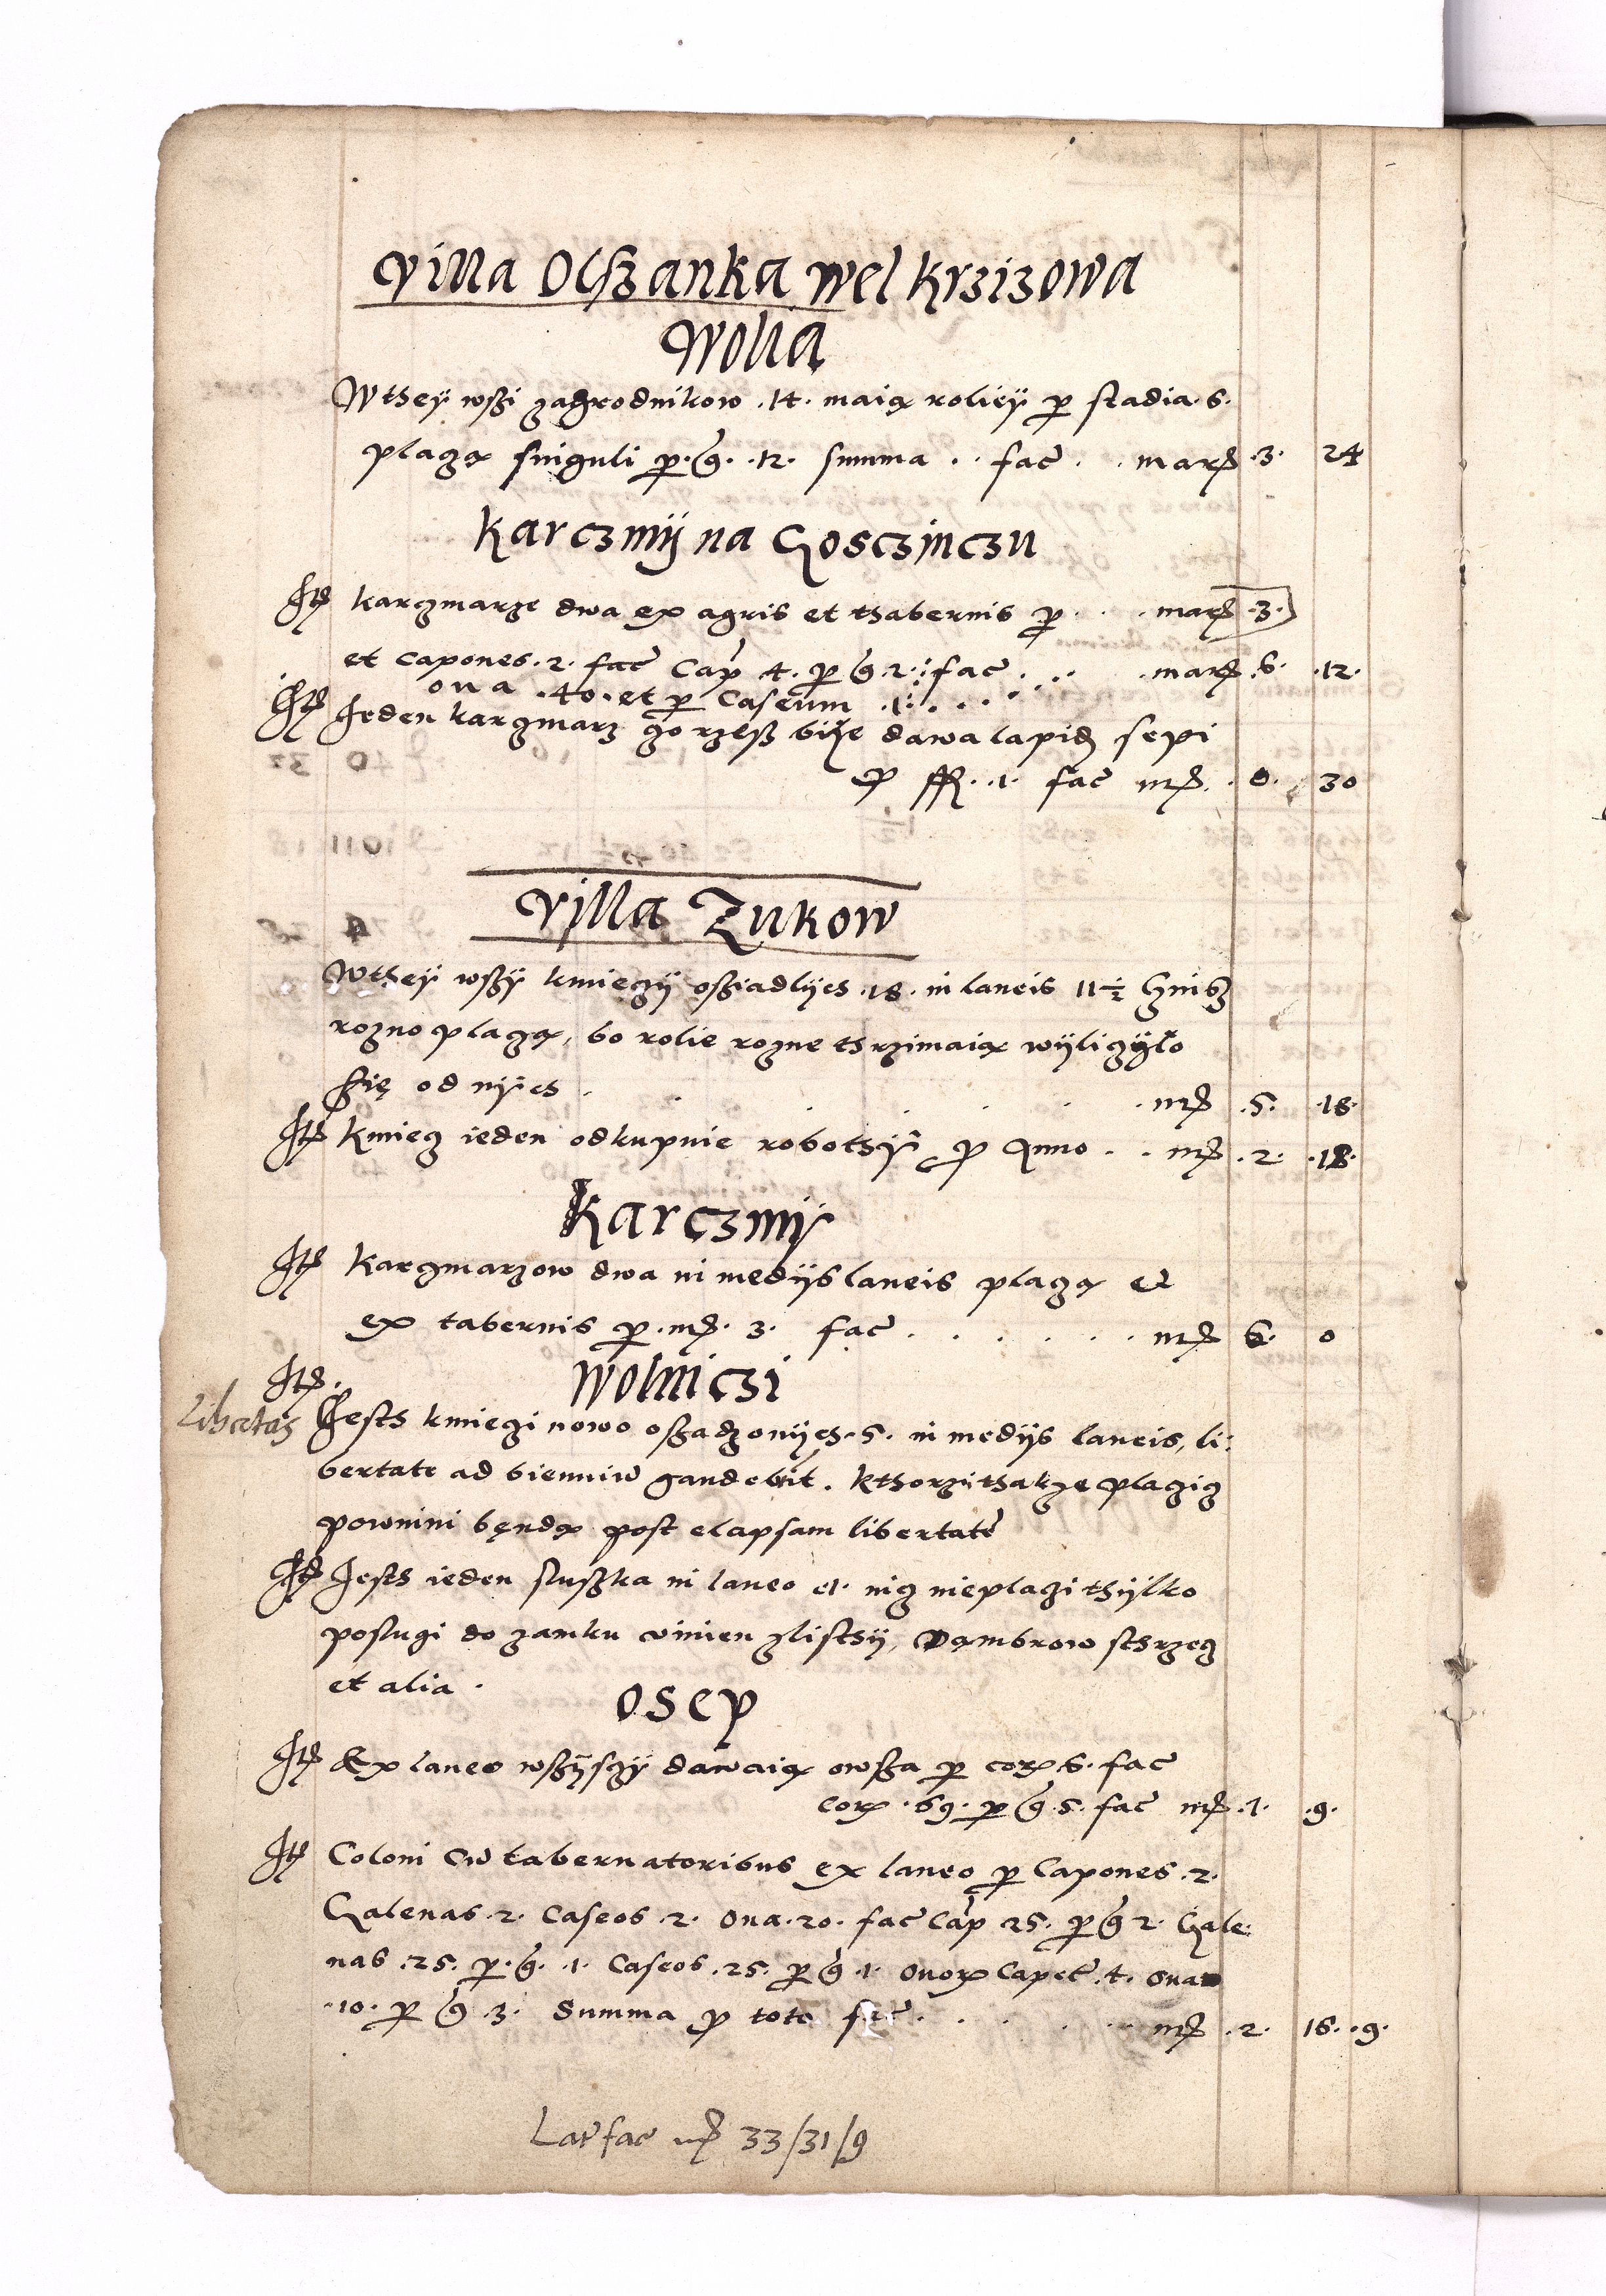 Villa Olszanka wel Krzizowa
Wolia
Wthey wszi zagrodnikow .14. maią roliey per stadia .6.
placzą singuli per g. .12. summa .. fac .. marc .3. 24
Karczmij na Gosczinczu
Item karczmarze dwa ex agris et thabernis per ... marc .3.
et capones .2. fac Cap 4. per g 2. fac .... marc .6. .12.
ova .40. et per Caseum .1. ....
Item Jeden karczmarz dawa lapid sepi
pro fl. .1. fac mr. .0. 30
Villa Zukow
Wthey wszy kmieczy osziadlyches .18. in laneis 11½ Czinsz
rozno placzą, bo rolie rozne thrzimaią wyliczylo
się od nyches . . . . . . mr .5. .18.
Item Kmiecz ieden odkupnie robothy pro Anno .. mr .2. .18.
Karczmy
Item Karczmarzow dwa in medijs laneis placzą et
ex tabernis per mr. 3. fac . . . . . . mr 6. 0
Wolniczi
Item.
Libertas Jesth kmieczi nowo oszadzonyches .5. in medijs laneis, li:
bertate ad bienniu gaudebit. kthorzi thakze placzicz
powinni bęndą post elapsam libertate
Item Jesth ieden sluszka in laneo .1. nicz nieplaczi thylko
poslugi do zamku winien zlisthy, Dąmbrow sthrzecz
et alia .
Osep
Item Ex laneo wszysczy dawaią owsza per cor 6. fac
cor .69. per g 5. fac mr .7. .9.
Item Coloni cu tabernatoribus ex laneo per Capones .2.
Galenas .2. Caseos .2. Ova .20. fac Cap 25. per g 2. Gale:
nas .25. per g. .1. Caseos .25. per g .1. Ovor Capet .4. Ova
.10. per g 3. Summa pro toto fac . . . . . mr .2. 16. .9.
Lat fac mr 33/31/9